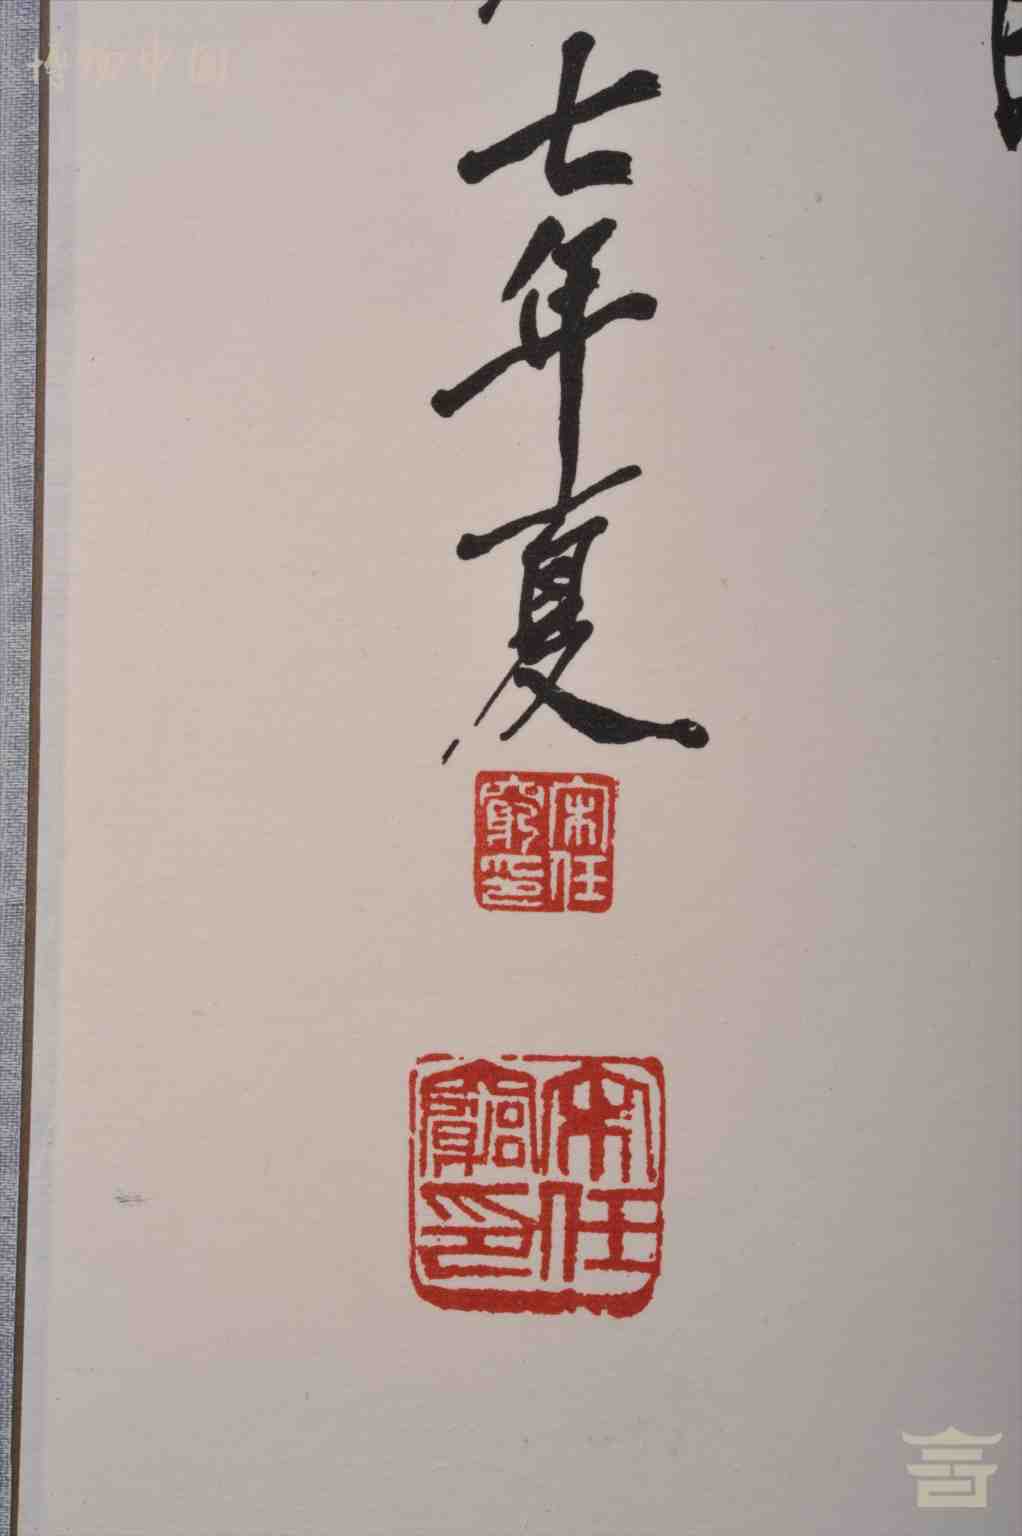 七年夏
宋任窮印
宋任窮印
博物中国